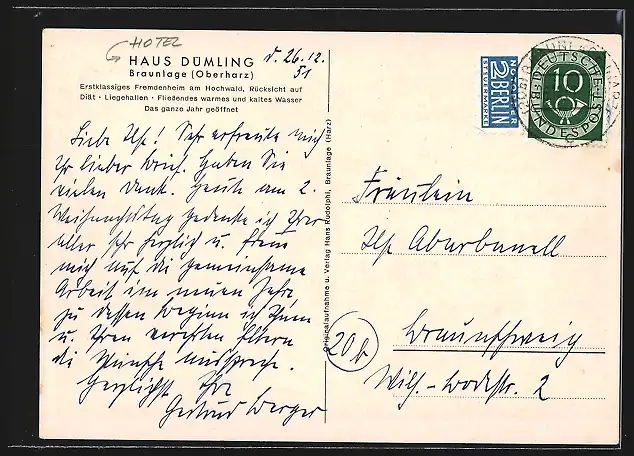 HOTEL
HAUS DÜMLING
Braunlage (Oberharz)
d. 26.12.
51
Erstklassiges Fremdenheim am Hochwald, Rücksicht auf
Diät · Liegehallen · Fließendes warmes und kaltes Wasser
Das ganze Jahr geöffnet
Liebe Ilse! Sehr erfreute mich
Ihr lieber Brief. Haben Sie
vielen Dank. Heute am 2.
Weihnachtstag gedenke ich Ihrer
aller sehr herzlich u. freue
mich auf die gemeinsame
Arbeit im neuen Jahr,
zu dessen Beginn ich Ihnen
u. Ihren verehrten Eltern
die Wünsche ausspreche.
Herzlichst Ihre
Gertrud Berger
Originalaufnahme u. Verlag Hans Rudolphi, Braunlage (Harz)
NOTOPFER
2 BERLIN
STEUERMARKE
DEUTSCHE
10
BUNDESPOST
Fräulein
Ilse Aburbanell
20b
Braunschweig
Wilh.-Bodestr. 2